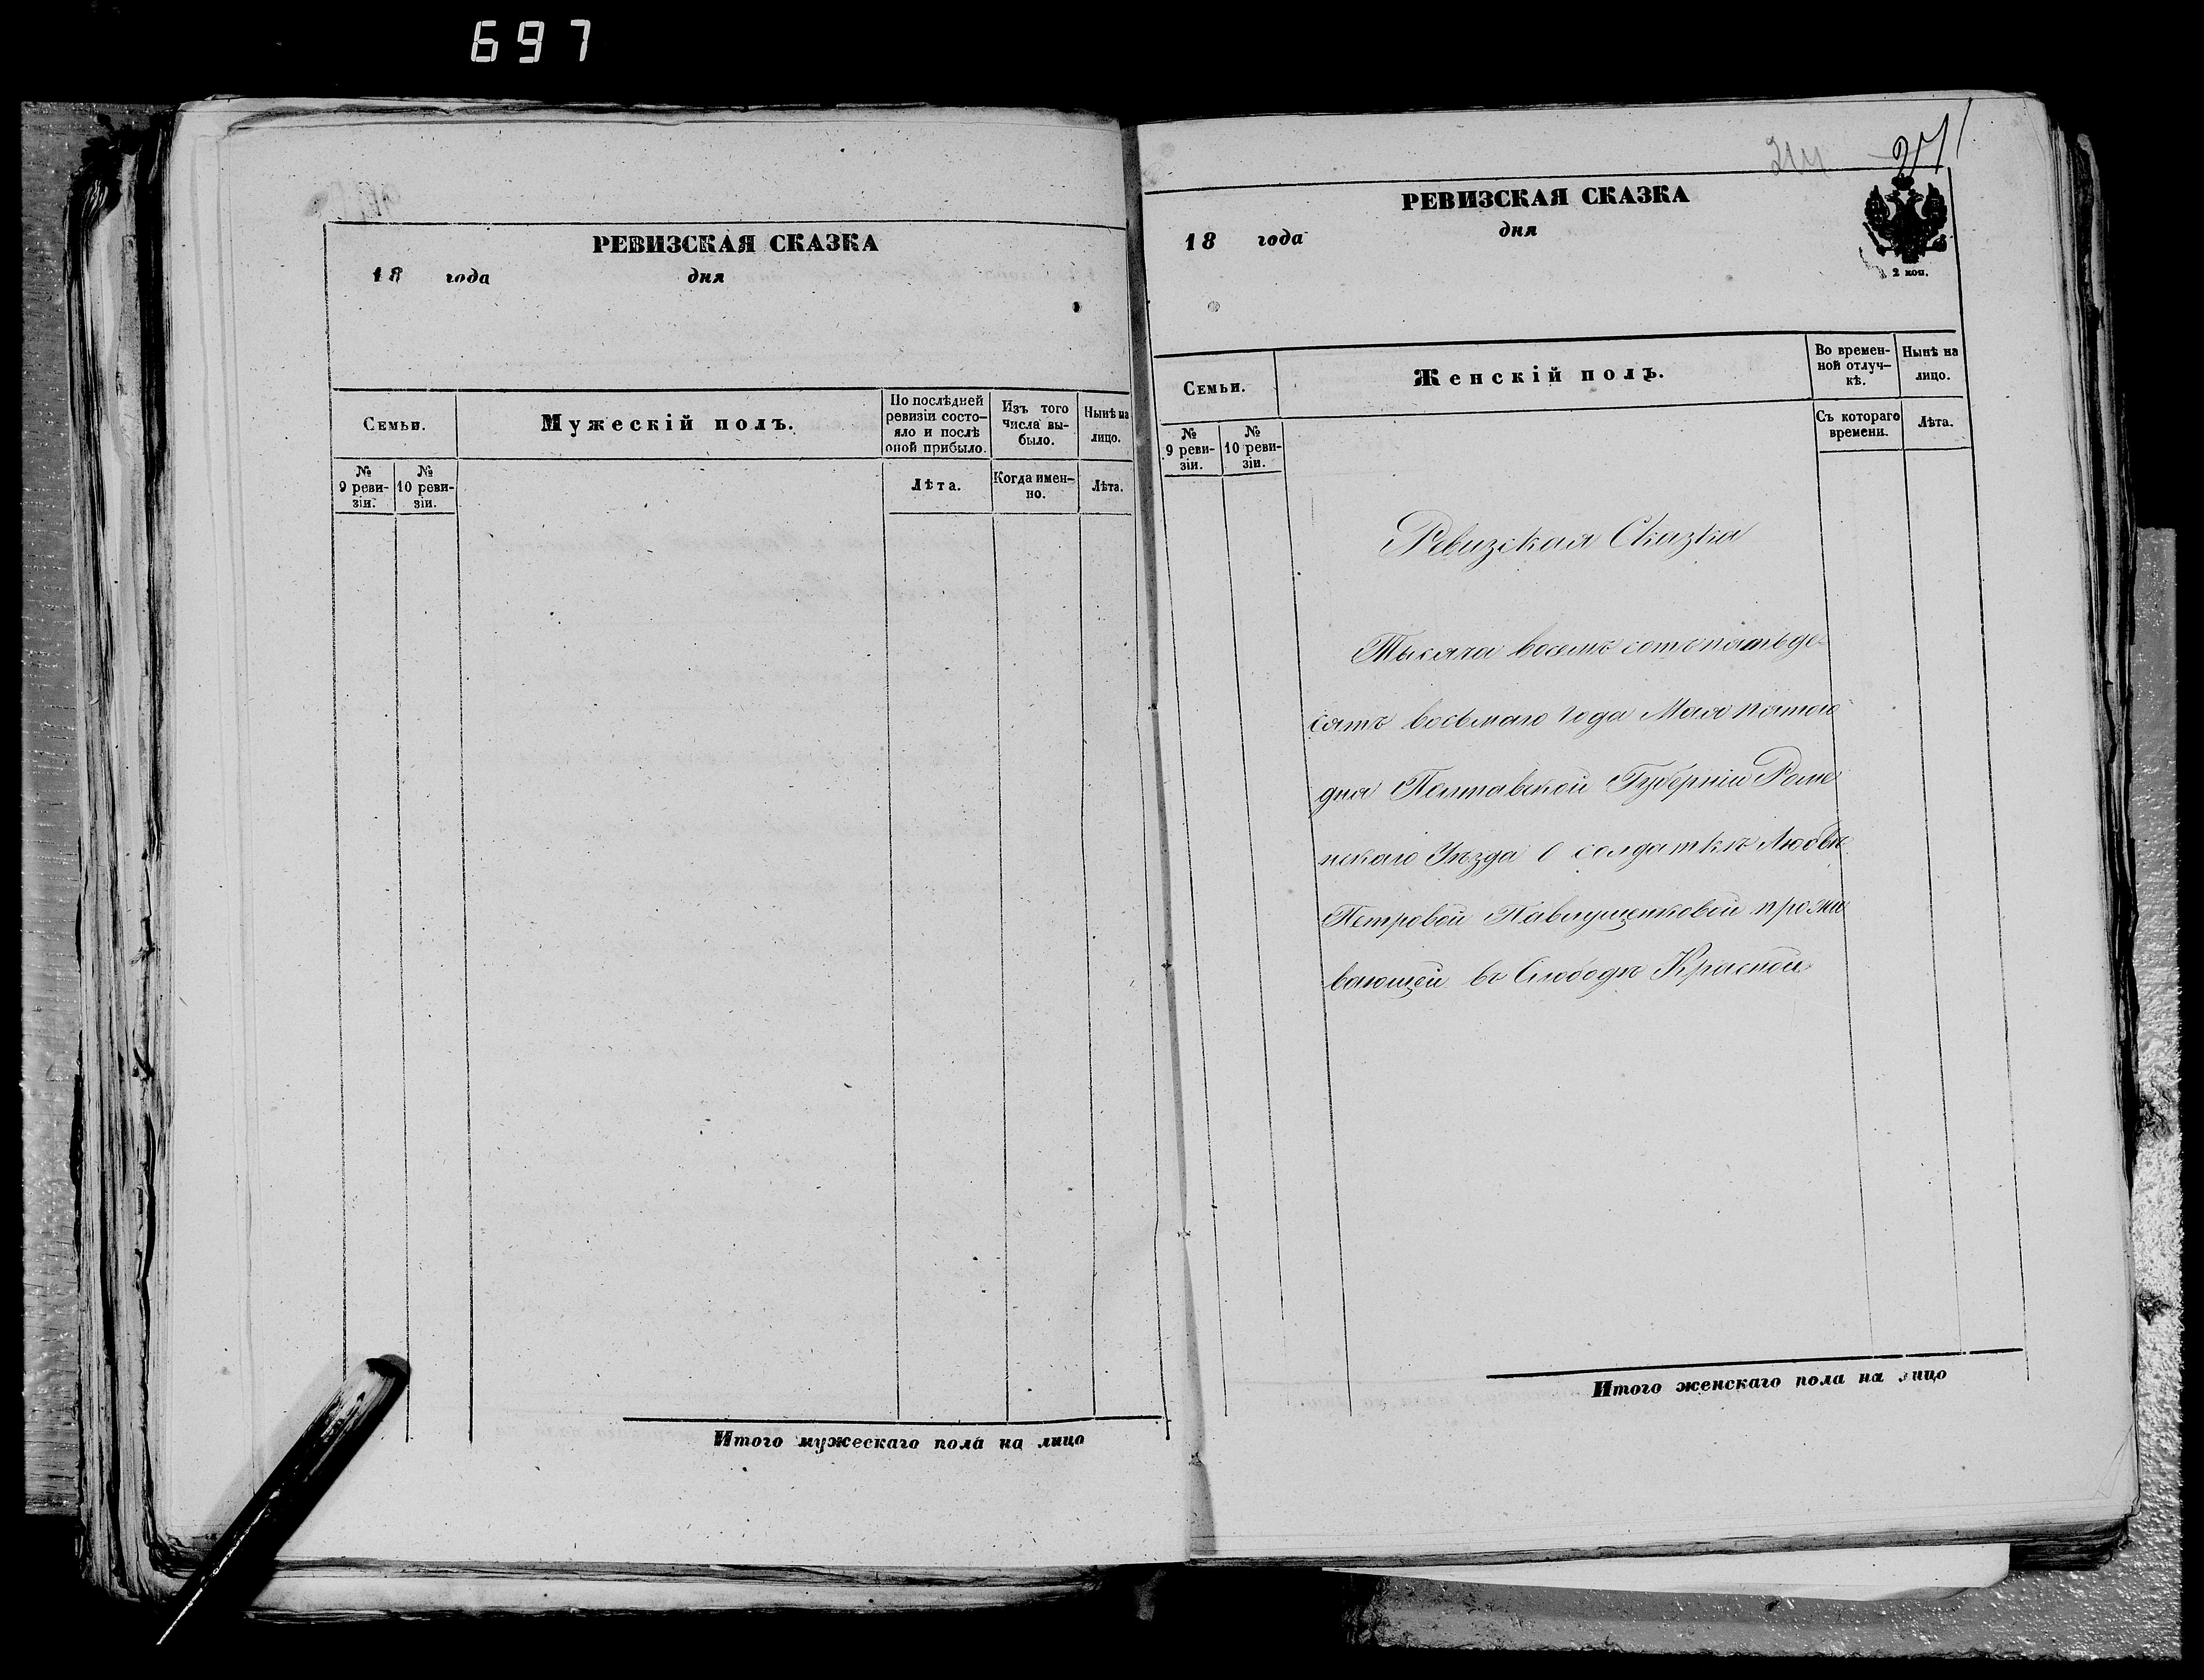 697
РЕВИЗСКАЯ СКАЗКА
18 года дня
Семьи.
Мужескій полъ.
По послѣдней
ревизіи состо-
яло и послѣ
оной прибыло.
Изъ того
числа вы-
было.
Нынѣ на
лицо.
№
9 реви-
зіи.
№
10 реви-
зіи.
Лѣта.
Когда имен-
но.
Лѣта.
Итого мужескаго пола на лицо
РЕВИЗСКАЯ СКАЗКА
18 года дня
2 коп.
Семьи.
Женскій полъ.
Во времен-
ной отлуч-
кѣ.
Нынѣ на
лицо.
№
9 реви-
зіи.
№
10 реви-
зіи.
Съ котораго
времени.
Лѣта.
Ревизская Сказка
Тысяча восемъ сотъ пятьде-
сятъ восьмаго года Мая пятаго
дня Полтавской Губерніи Роме
нскаго Уѣзда о солдаткѣ Любвѣ
Петровой Павлущенковой прожи
вающей въ Слободѣ Красной
Итого женскаго пола на лицо